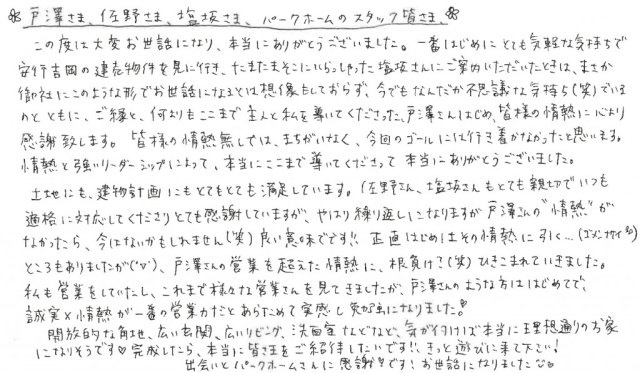 戸澤さま、佐野さま、塩坂さま、パークホームのスタッフ皆さま
この度は大変お世話になり、本当にありがとうございました。一番はじめにとても気軽な気持ちで
安行吉岡の建売物件を見に行き、たまたまそこにいらっしゃった塩坂さんにご案内いただいたときは、まさか
御社にこのような形でお世話になるとは想像もしておらず、今でもなんだか不思議な気持ち(笑)でいる
のとともに、ご縁と、何よりもここまで主人と私を導いてくださった、戸澤さんはじめ、皆様の情熱に心より
感謝致します。皆様の情熱無しでは、まちがいなく、今回のゴールには行き着かなかったと思います。
情熱と強いリーダーシップによって、本当にここまで導いてくださって本当にありがとうございました。
土地にも、建物計画にもとてもとても満足しています。佐野さん、塩坂さんもとても親切でいつも
適格に対応してくださりとても感謝していますが、やはり繰り返しになりますが戸澤さんの"情熱"が
なかったら、今はないかもしれません(笑)良い意味でです!! 正直はじめはその情熱に引く…(ゴメンナサイ)
ところもありましたが(^▽^)、戸澤さんの営業を超えた情熱に、根負け?(笑)ひきこまれていきました。
私も営業をしていたし、これまで様々な営業さんを見てきましたが、戸澤さんのような方ははじめてで、
誠実×情熱が一番の営業力だとあらためて実感し勉強になりました!
開放的な角地、広い玄関、広いリビング、洗面室などなど、気が付けば本当に理想通りのお家
になりそうです♡完成したら、本当に皆さまをご招待したいです!!きっと遊びに来て下さい!
出会いとパークホームさんに感謝♡です!お世話になりました